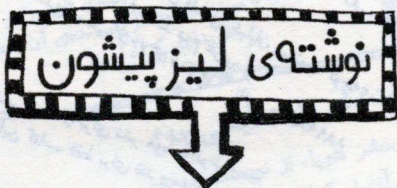 نوشته‌ی لیز پیشون